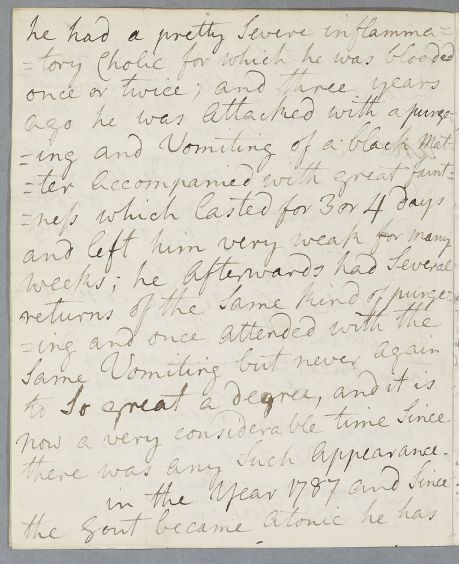 he had a pretty Severe inflamma=
=tory Cholic for which he was blooded
once or twice; and three years
ago he was Attacked with a purge=
=ing and Vomiting of a black Mat=
=ter Accompanied with great faint=
=ness which Casted for 3 or 4 days
and left him very weak for many
weeks; he Afterwards had Several
returns of the Same kind of purge=
=ing and once attended with the
Same Vomiting but never again
to So great a degree, and it is
now a very considerable time Since
there was any Such Appearance.
in the Year 1787 and Since
the Gout became Atonic he has